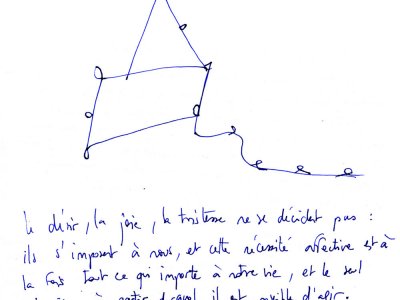 le désir, la joie, la tristesse ne se décident pas :
ils s'imposent à nous, et cette nécessité affective est à
la fois tout ce qui importe à notre vie, et le seul
à partir duquel il est possible d'agir.